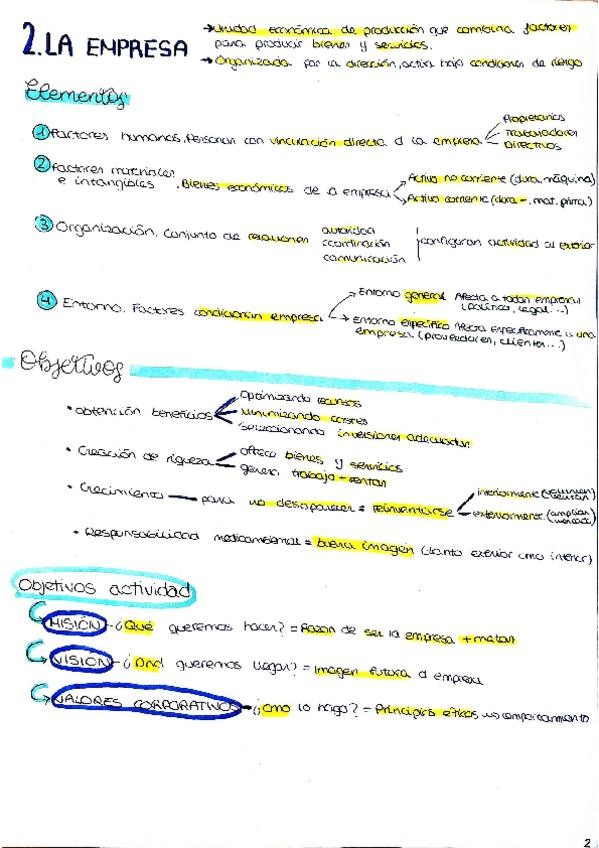 2. LA EMPRESA
→Unidad económica de producción que combina factores
para producir bienes y servicios.
→Organizada por la dirección, actúa bajo condiciones de riesgo
Elementos
① Factores humanos. Personas con vinculación directa d la empresa
Propietarios
Trabajadores
Directivos
② Factores materiales
e intangibles. Bienes económicos de la empresa
Activo no corriente (dura. máquina)
Activo corriente (dura -, mat. prima)
③ Organización. Conjunto de relaciones
autoridad
coordinación
comunicación
configuran actividad al exterior
④ Entorno. Factores condicionan empresa
Entorno general Afecta a todas empresas
(político, legal...)
→ Entorno específico Afecta específicamente a una
empresa (proveedores, clientes...)
Objetivos
• Obtención beneficios
Optimizando recursos
Minimizando costes
Seleccionando inversiones adecuadas
• Creación de riqueza
ofrece bienes y servicios
genera trabajo + rentas
• Crecimiento — para no desaparecer = reinventarse
interiormente
exteriormente (amplían mercado)
• Responsabilidad medioambiental = buena imagen (tanto exterior como interior)
Objetivos actividad
MISIÓN - ¿Qué queremos hacer? = Razón de ser la empresa + metas
VISIÓN - ¿Ond queremos llegar? = Imagen futura d empresa
VALORES CORPORATIVOS - ¿cmo lo hago? = Principios éticos comportamiento
2